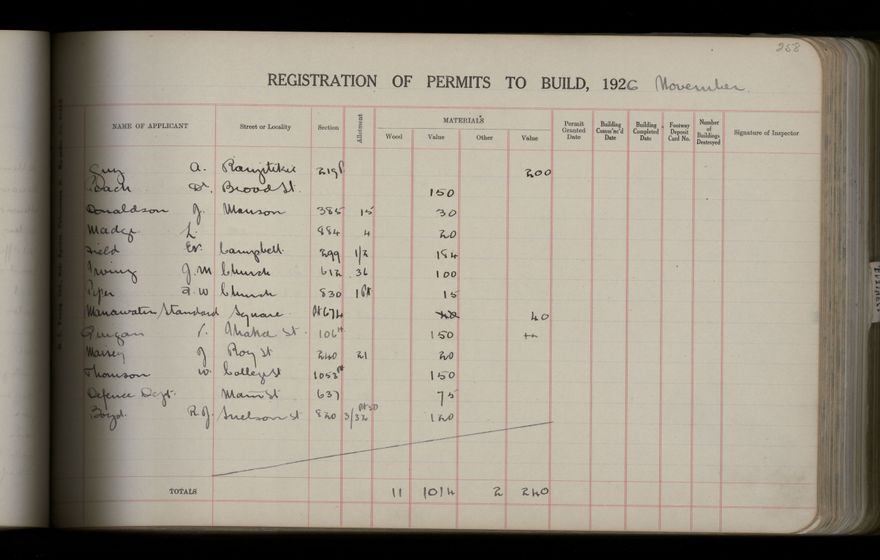 258
REGISTRATION OF PERMITS TO BUILD, 1926 November
NAME OF APPLICANT Street or Locality Section Allotment MATERIALS Permit Granted Date Building Comm'nc'd Date Building Completed Date Footway Deposit Card No. Number of Buildings Destroyed Signature of Inspector
Wood Value Other Value
Guy A. Rangitikei 219 200
Broad St. 150
Donaldson J. Manson 385 15 30
Madge L. 884 4 20
Field Er. Campbell 299 1/2 184
Irving J.M Church 612 36 100
Piper a.w Church 830 1 pt 15
Manawatu Standard Square Pt 674 40
St. 106 150
Massey J Roy St 240 21 20
Thomson W. College St 1053 pt 150
Defence Dept. Main St 637 75
Boyd R J. Snelson St 820 3/32 120
TOTALS 11 1014 2 240